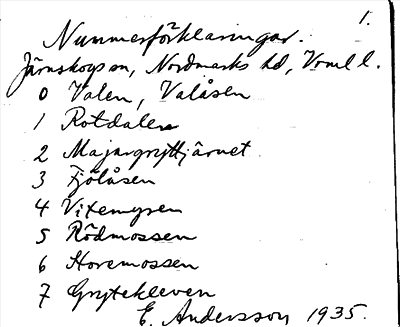 1.
Nummerförklaringar.
Järnskogs sn, Nordmarks hd, Vrml l.
0 Valen, Valåsen
1 Rotdalen
2 Majorgryttjärnet
3 Fjölåsen
4 Vitemyren
5 Rödmossen
6 Hovemossen
7 Grytekleven
E. Andersson 1935.